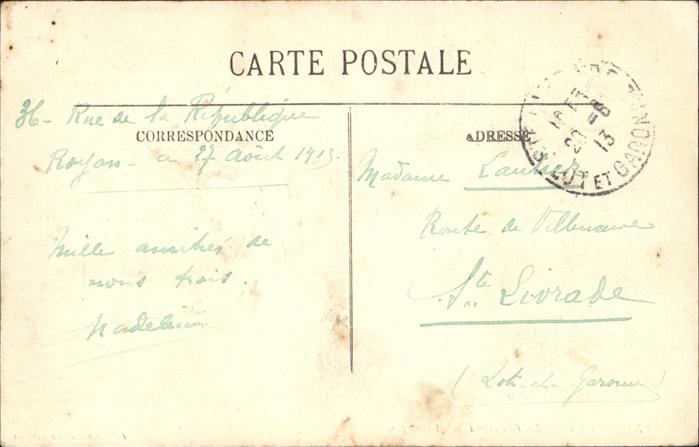 CARTE POSTALE
CORRESPONDANCE
36 - Rue de la République
Royan - ce 27 août 1913.
Mille amitiés de
nous trois.
Madeleine
ADRESSE
Madame
Route de Villeneuve
Ste Livrade
(Lot-et-Garonne)
LOT ET GARONNE
29 -8
13